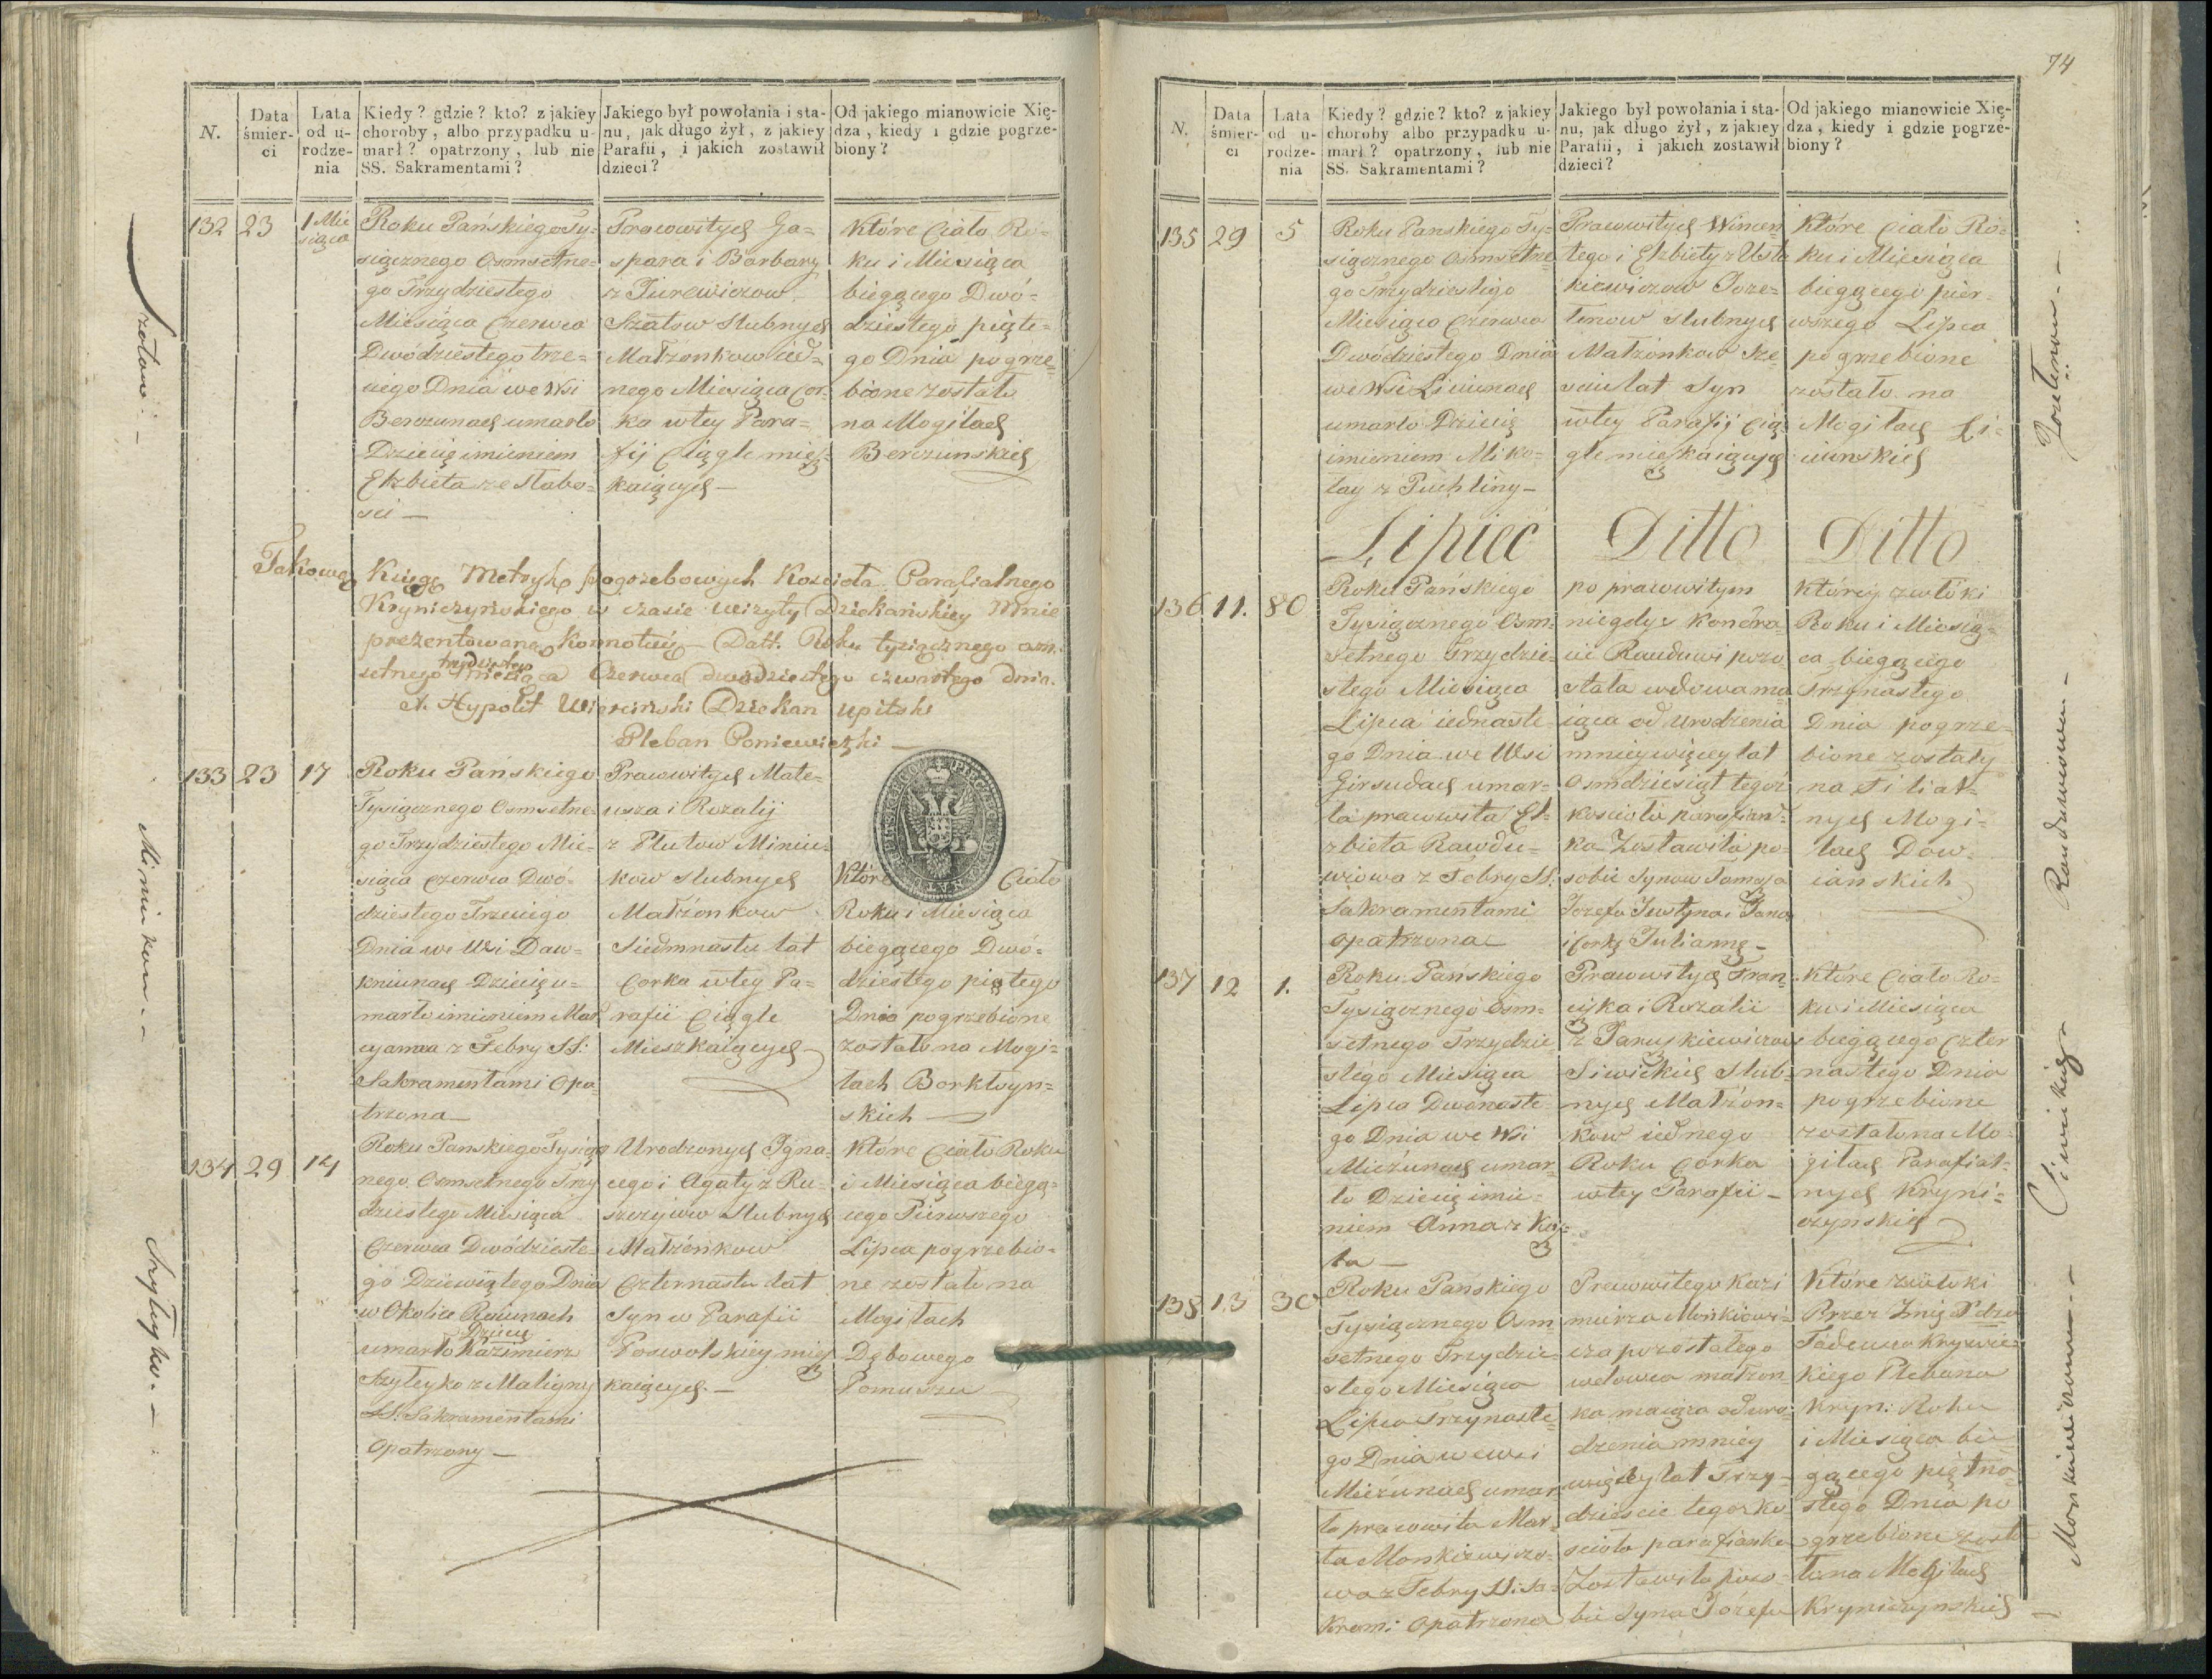 N.
Data śmier-ci
Lata od u-rodze-nia
Kiedy? gdzie? kto? z jakiey
choroby, albo przypadku u-
marł? opatrzony, lub nie
SS. Sakramentami?
Jakiego był powołania i sta-
nu, jak długo żył, z jakiey
Parafii, i jakich zostawił
dzieci?
Od jakiego mianowicie Xię-
dza, kiedy i gdzie pogrze-
biony?
132
23
1 Mie
siąca
Roku Pańskiego Ty-
siącznego Osmsetne-
go Trzydziestego
Miesiąca Czerwca
Dwódziestego trze-
ciego Dnia we Wsi
Berczunach umarło
Dziecię imieniem
Elżbieta ze słabo-
sci —
Prawowitych Ga-
spara i Barbary
z Jurewiczow
Szatow Slubnych
Małżonkow ied-
nego Miesiąca Cor-
ka w tey Para-
fij Ciągle miesz-
kaiących —
Które Ciało Ro-
ku i Miesiąca
biegącego Dwó-
dziestego piąte-
go Dnia pogrze-
bione zostało
na Mogiłach
Berczunskich
Takową Księgę Metryk pogrzebowych Koscioła Parafialnego
Kryniczyńskiego w czasie wizyty Dziekańskiey Mnie
prezentowaną konnotuię — Datt. Roku tysiącznego osm-
setnego trzydziestego Miesiąca Czerwca dwudziestego czwartego dnia.
X. Hypolit Dziekan Upitski
Pleban Poniewiezki —
133
23
17
Roku Pańskiego
Tysiącznego Osmsetne-
go Trzydziestego Mie-
siąca Czerwca Dwó-
dziestego Trzeciego
Dnia we Wsi Daw-
kniunach Dziecię u-
marło imieniem Mar
cyanna z Febry SS:
Sakramentami Opa-
trzona —
Prawowitych Mate-
usza i Rozalij
z Plutow Miniu-
kow slubnych
Małżonkow
Siedmnastu lat
Corka w tey Pa-
rafii Ciągle
Mieszkaiących —
Które Ciało
Roku i Miesiąca
biegącego Dwó-
dziestego piątego
Dnia pogrzebione
zostało na Mogi-
łach Borkłoyn-
skich —
134
29
14
Roku Panskiego Tysiącz
nego Osmsetnego Trzy
dziestego Miesiąca
Czerwca Dwódzieste-
go Dziewiątego Dnia
w Okolice Rawnach
Dziecię
umarło Kazimierz
Szyleyko z Maligny
SS. Sakramentami
Opatrzony —
Urodzonych Igna-
cego i Agaty z Ru-
szczycow Slubnych
Małżonkow
Czternastu lat
Syn w Parafii
Poswolskiey miesz
kaiących —
Które Ciało Roku
i Miesiąca biegą-
cego Pierwszego
Lipca pogrzebio-
ne zostało na
Mogiłach
Dębowego
Pomuszu
Szatow —
Miniukow —
Szyleyko —
74
N.
Data śmier-ci
Lata od u-rodze-nia
Kiedy? gdzie? kto? z jakiey
choroby albo przypadku u-
marł? opatrzony, lub nie
SS. Sakramentami?
Jakiego był powołania i sta-
nu, jak długo żył, z jakiey
Parafii, i jakich zostawił
dzieci?
Od jakiego mianowicie Xię-
dza, kiedy i gdzie pogrze-
biony?
135
29
5
Roku Panskiego Ty-
siącznego Osmsetne-
go Trzydziestego
Miesiąca Czerwca
Dwódziestego Dnia
we Wsi Liciunach
umarło Dziecię
imieniem Miko-
łay z Puchliny —
Prawowitych Wincen
tego i Elzbiety z Usta
kiewiczow Joze-
lunow slubnych
Małzonkow Sze
sciu lat Syn
w tey Parafij Cią
gle mieszkaiących
Które Ciało Ro-
ku i Miesiąca
biegącego pier-
wszego Lipca
pogrzebione
zostało na
Mogiłach Li-
ciunskich
Lipiec Ditto Ditto
136
11.
80
Roku Pańskiego
Tysiącznego Osm-
setnego Trzydzie-
stego Miesiąca
Lipca iednaste-
go Dnia we Wsi
Girsudach umar-
ła prawowita El-
zbieta Rawdu-
wiowa z Febry SS.
Sakramentami
opatrzona
po prawowitym
niegdys Kondra-
cie Rauduwi pozo
stała wdowa ma
iąca od Urodzenia
mniey więcey lat
Osmdziesiąt tegoż
kosciola parafian-
ka Zostawiła po-
sobie Synow Tomasza
Jozefa Justyna i Jana
i Corkę Juliannę —
Którey zwłoki
Roku i Miesią-
ca biegącego
Trzynastego
Dnia pogrze-
bione zostały
na Filial-
nych Mogi-
łach Daw-
cianskich
137
12
1.
Roku Pańskiego
Tysiącznego Osm-
setnego Trzydzie-
stego Miesiąca
Lipca Dwónaste-
go Dnia we Wsi
Mieżunach umar-
ło Dziecię imie-
niem Anna z Kasz-
łu —
Prawowitych Fran-
ciszka i Rozalii
z Januszkiewiczow
Siwickich Slub-
nych Małżon-
kow iednego
Roku Corka
w tey Parafii —
Które Ciało Ro-
ku i Miesiąca
biegącego Czter
nastego Dnia
pogrzebione
zostało na Mo-
giłach Parafial-
nych Kryni-
czynskich
138
13
30
Roku Pańskiego
Tysiącznego Osm-
setnego Trzydzie-
stego Miesiąca
Lipca Trzynaste-
go Dnia w e wsi
Mieżunach umar-
ła prawowita Mar-
ta Monkiewiczo-
wa z Febry SS. Sa-
kram: opatrzona
Prawowitego Kazi
mierza Monkiewi-
cza pozostałego
wdowca małżon-
ka maiąca od uro-
dzenia mniey
więcey lat Trzy-
dziescie tegoz ko-
scioła parafianka
Zostawiła poso-
bie Syna Jozefa
Które zwłoki
Przez Imię Xdza
Tadeusza Krzywic-
kiego Plebana
Kryn: Roku
i Miesiąca bie-
gącego piętna-
stego Dnia po
grzebione zosta
ło na Mogiłach
Kryniczynskich
Jozelunow —
Rauduwiowa —
Siwickich
Monkiewiczowa —